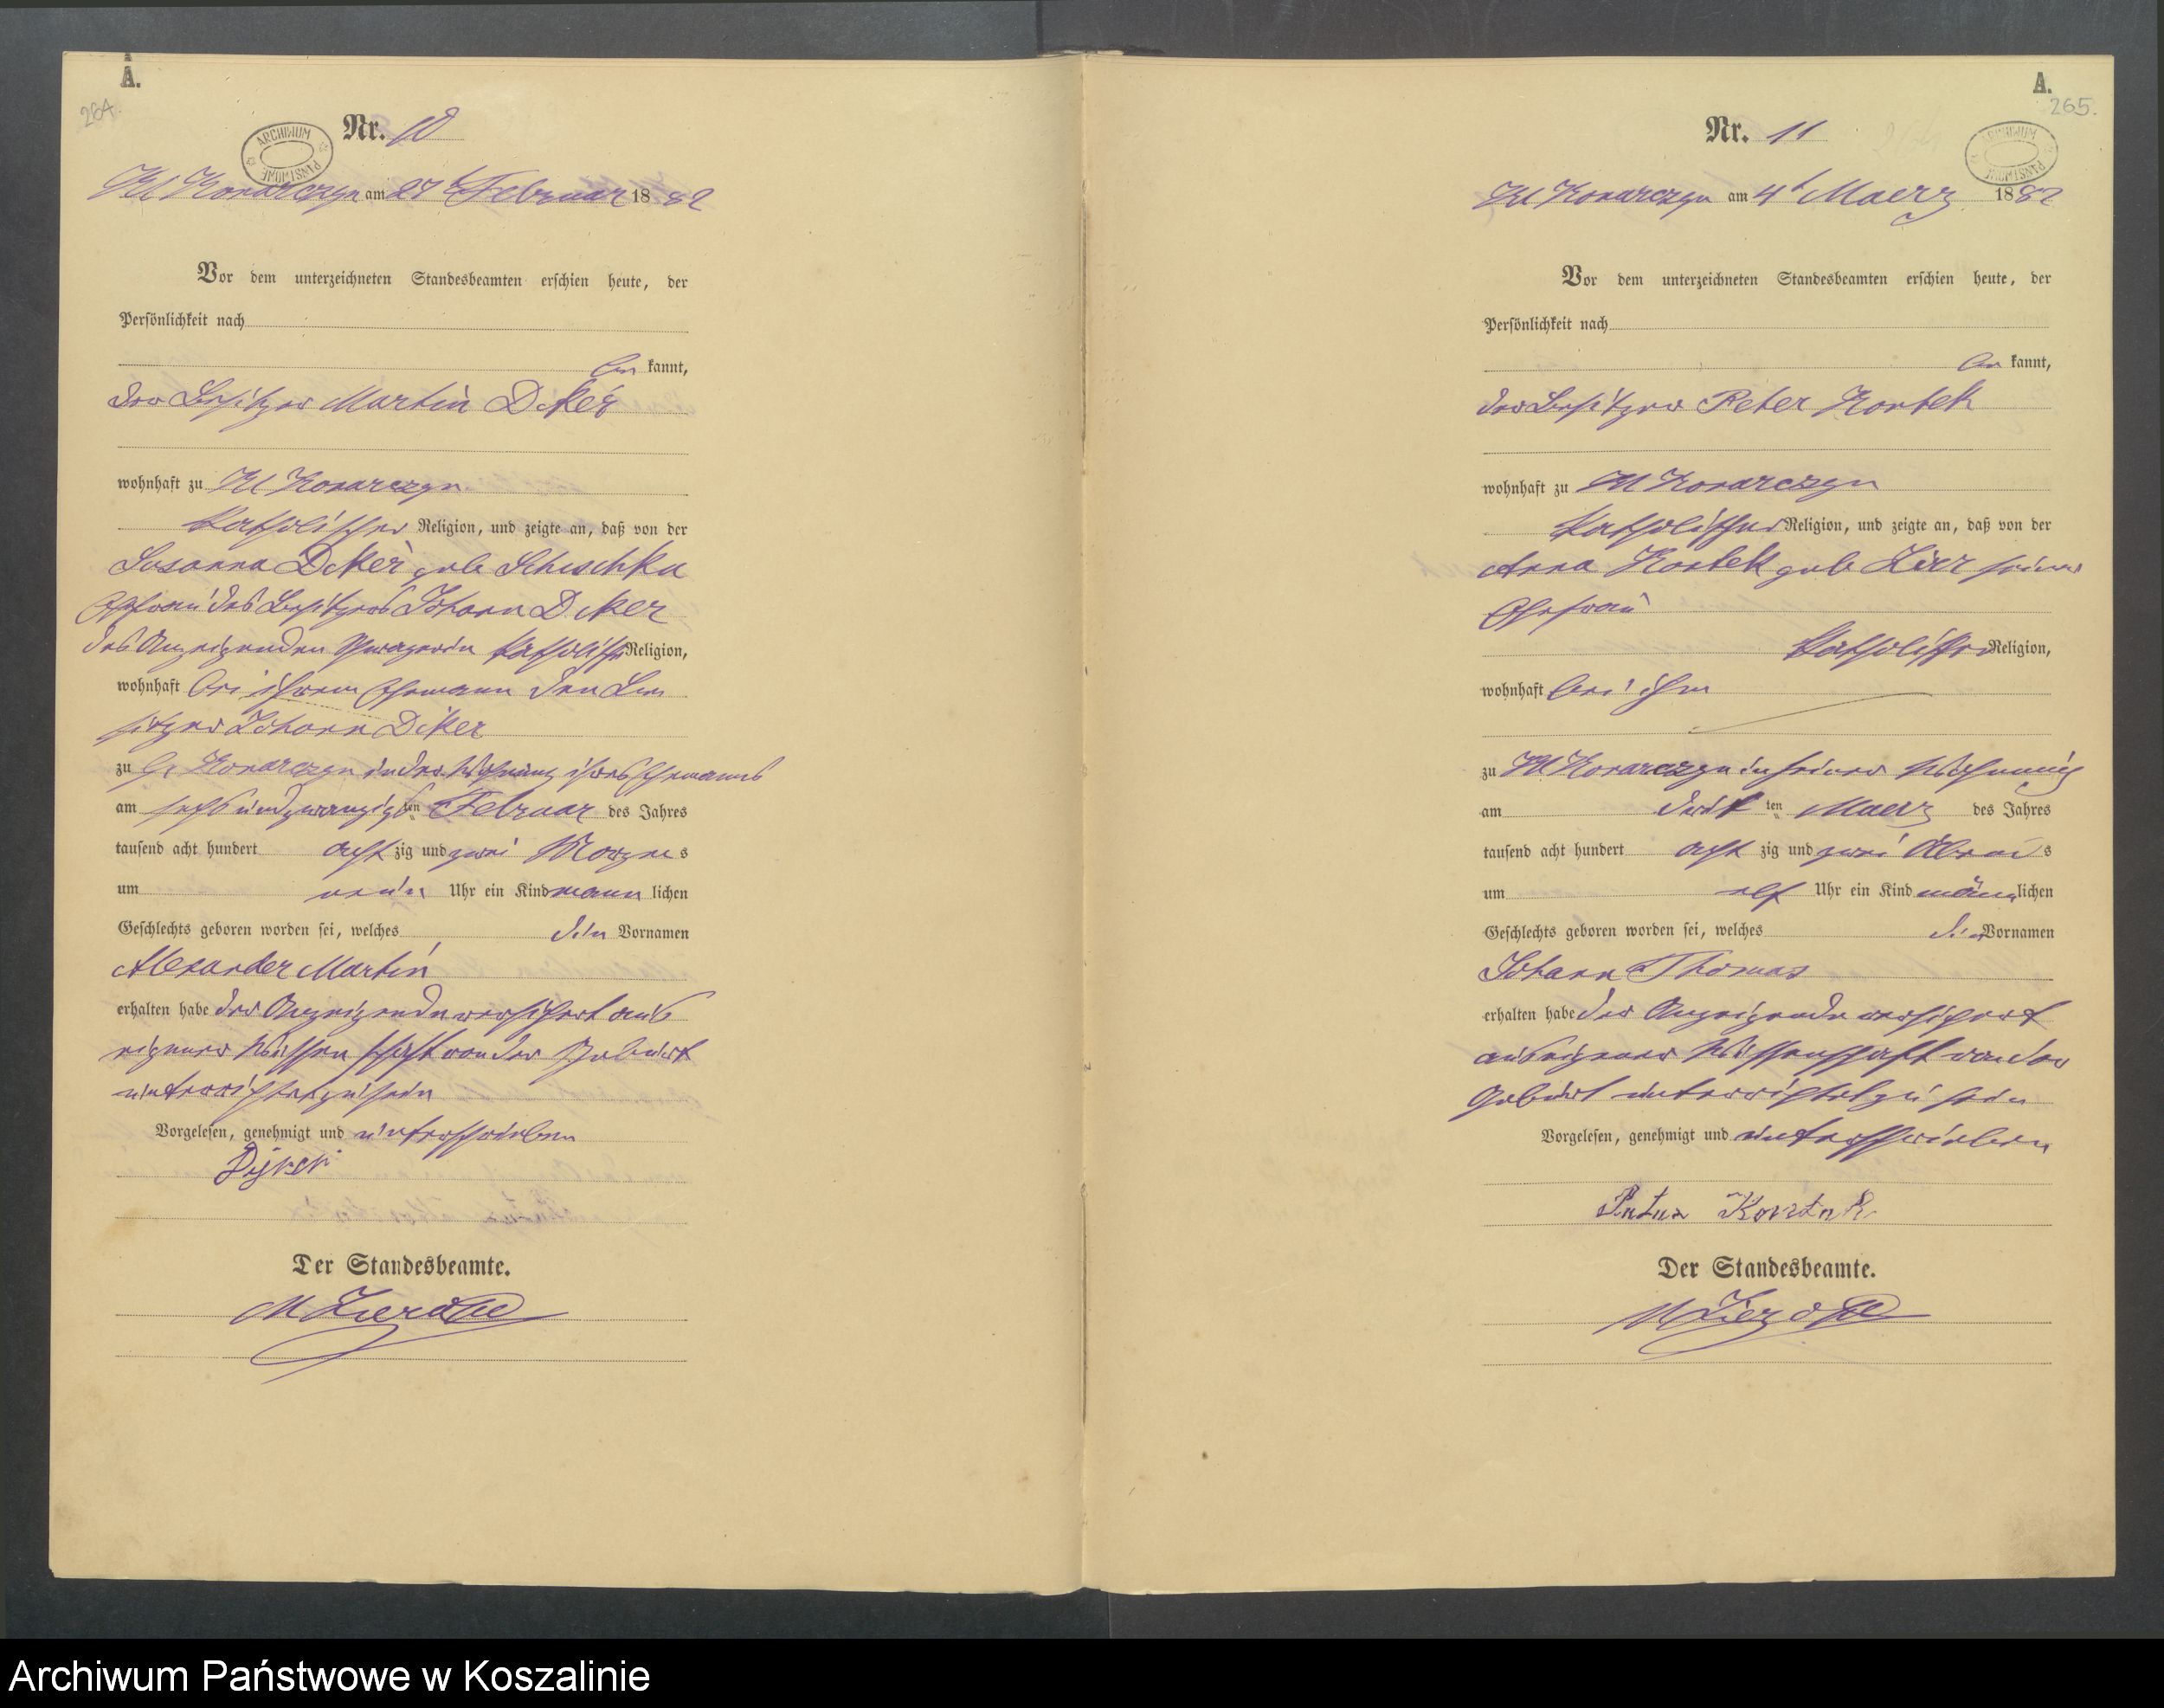 A.
264.
Nr. 10
ARCHIWUM PAŃSTWOWE
Kl Konarczyn am 27t Februar 1882
Vor dem unterzeichneten Standesbeamten erschien heute, der
Persönlichkeit nach
be kannt,
der Besitzer Martin Diker
wohnhaft zu Kl Konarczyn
katholischer Religion, und zeigte an, daß von der
Susanna Diker geb Schuschke
Ehefrau des Besitzers Johann Diker
des Anzeigenden Schwagerin katholischer Religion,
wohnhaft bei ihrem Ehemann den Be
sitzer Johann Diker
zu Gr Konarczyn in der Wohnung ihres Ehemanns
am sechsundzwanzigsten Februar des Jahres
tausend acht hundert acht zig und zwei Morgens
um neun Uhr ein Kind mann lichen
Geschlechts geboren worden sei, welches die Vornamen
Alexander Martin
erhalten habe der Anzeigende versichert aus
eigener Wissenschaft von der Geburt
unterrichtet zu sein
Vorgelesen, genehmigt und unterschrieben
Der Standesbeamte.
A.
265.
Nr. 11
ARCHIWUM PAŃSTWOWE
Kl Konarczyn am 4t Maerz 1882
Vor dem unterzeichneten Standesbeamten erschien heute, der
Persönlichkeit nach
be kannt,
der Besitzer Peter Kortek
wohnhaft zu Kl Konarczyn
katholischer Religion, und zeigte an, daß von der
Anna Kortek geb seiner
Ehefrau
katholischer Religion,
wohnhaft bei ihm
zu Kl Konarczyn in seiner Wohnung
am drit ten Maerz des Jahres
tausend acht hundert acht zig und zwei Abends
um elf Uhr ein Kind männ lichen
Geschlechts geboren worden sei, welches die Vornamen
Johann Thomas
erhalten habe der Anzeigende versichert
aus eigener Wissenschaft von der
Geburt unterrichtet zu sein
Vorgelesen, genehmigt und unterschrieben
Peter Kortek
Der Standesbeamte.
Archiwum Państwowe w Koszalinie